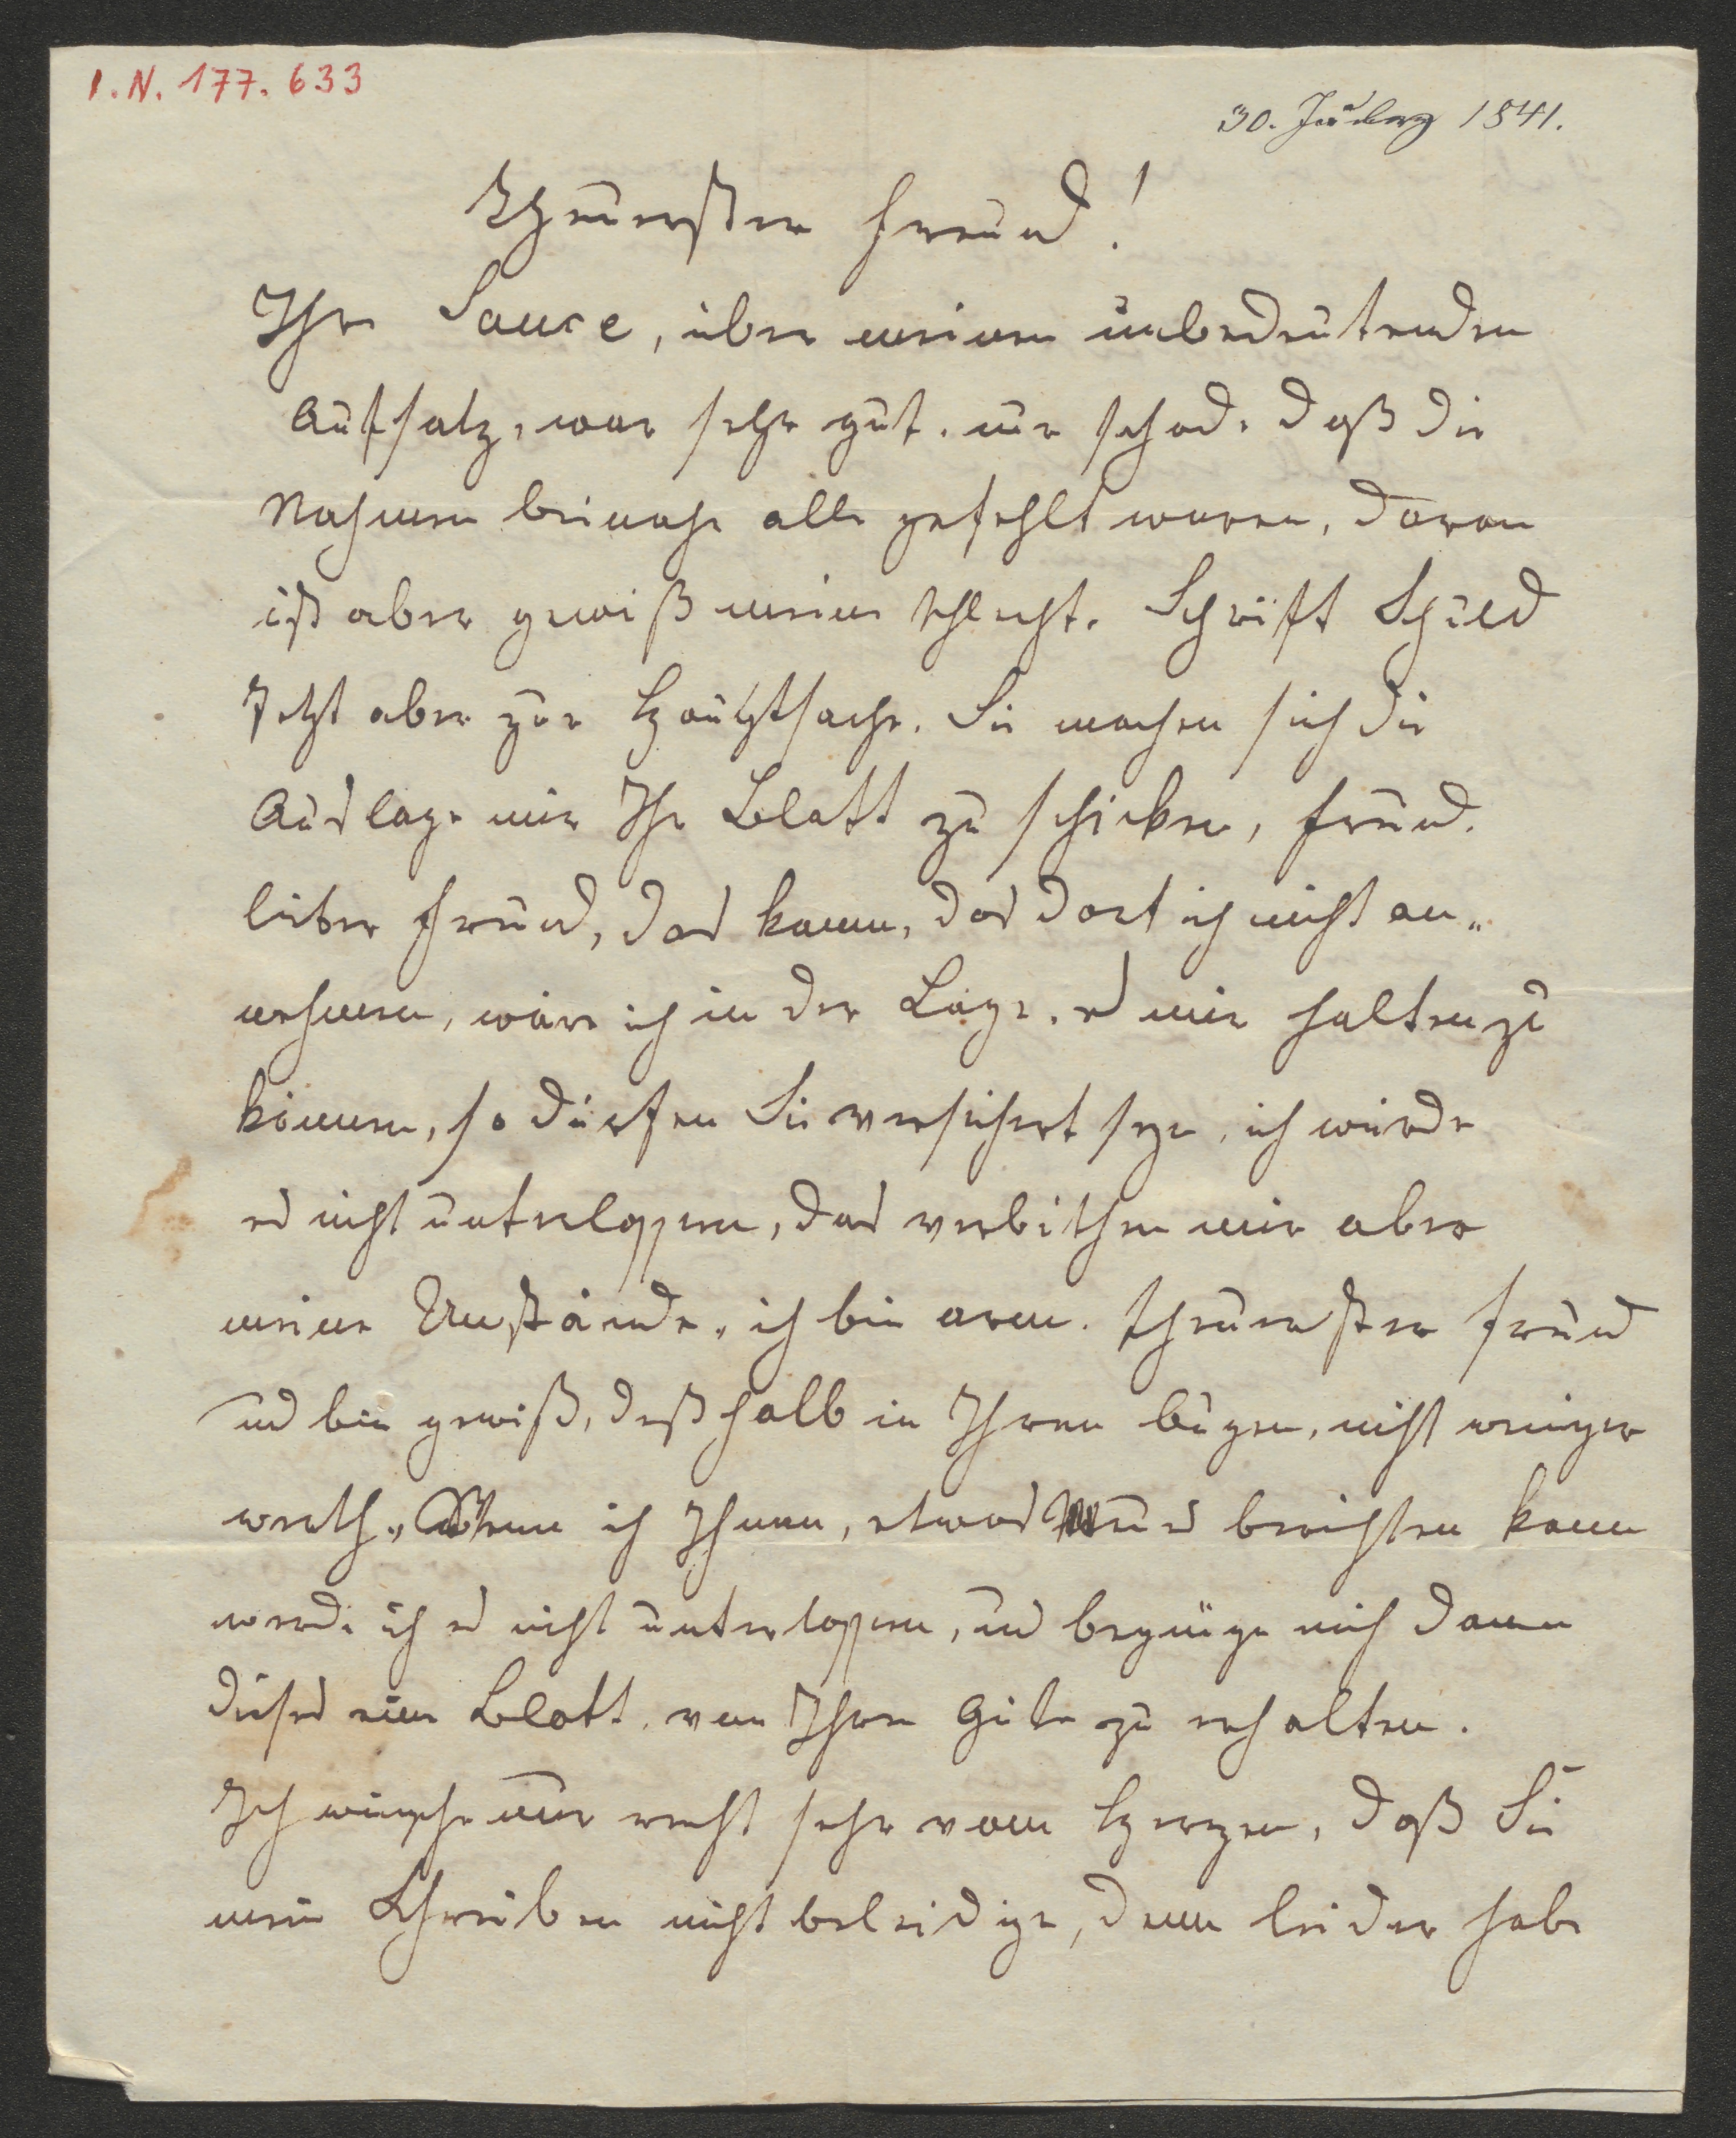 I.N. 177.633
30. 1841.
Theuerster Freund!
Ihre Sauce, über meinen unbedeutenden
Aufsatz, war sehr gut. nur schade daß die
Nahmen beinahe alle gefehlt waren, daran
ist aber gewiß meine schlechte Schrift Schuld
Jetzt aber zur Hauptsache. Sie machen sich die
Auslage mir Ihr Blatt zu schicken, Freund.
lieber Freund, das kann, das darf ich nicht an„
nehmen, wäre ich in der Lage, es mir halten zu
können, so dürfen Sie versichert seyn, ich würde
es nicht unterlassen, das verbiethen mir aber
meine Umstände, ich bin arm. theuerster Freund
und bin gewiß, deßhalb in Ihren Augen, nicht weniger
werth, Wenn ich Ihnen, etwas Neues berichten kann
werde ich es nicht unterlassen, und begnüge mich dann
dieses eine Blatt, von Ihrer Güte zu erhalten.
Ich wünsche nur recht sehr vom Herzen, daß Sie
mein Schreiben nicht beleidige, denn leider habe